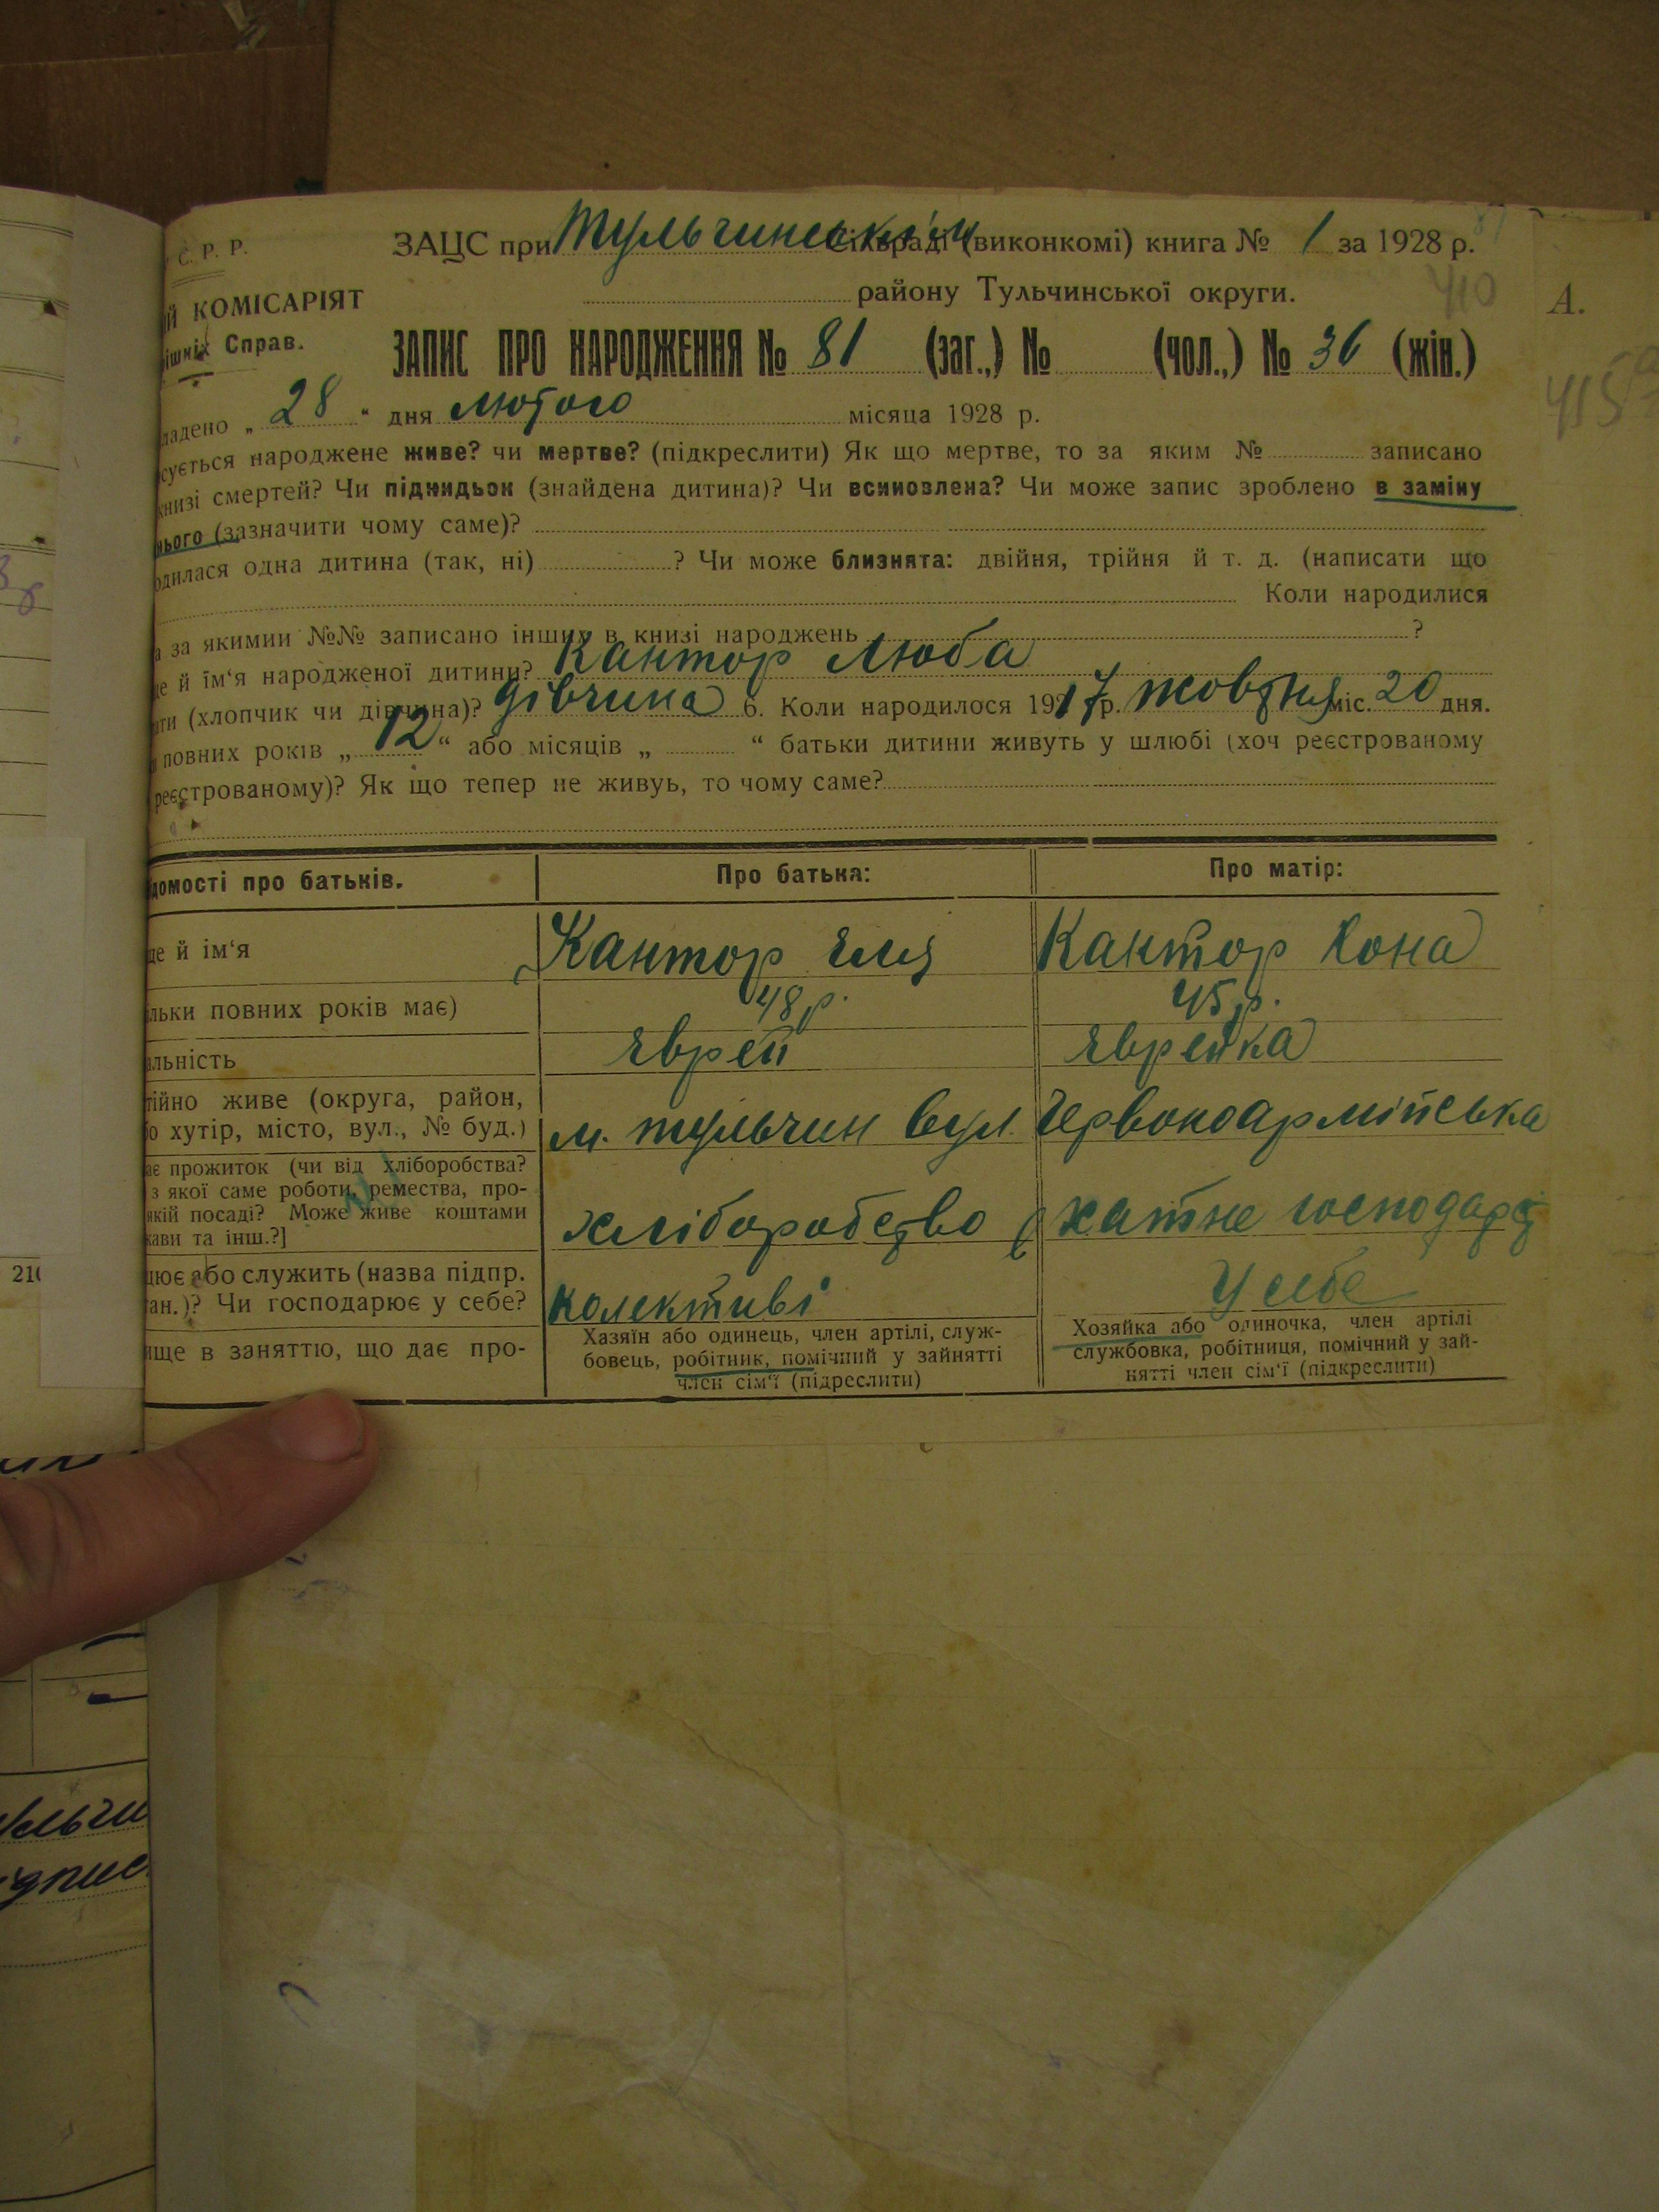 С. Р. Р.
ЗАЦС при Тульчинськім сільраді (виконкомі) книга № 1 за 1928 р.
410
А.
й КОМІСАРІЯТ
району Тульчинської округи.
ішніх Справ.
ЗАПИС ПРО НАРОДЖЕННЯ № 81 (заг.,) № (чол.,) № 36 (жін.)
415
ладено „ 28 “ дня лютого місяца 1928 р.
сується народжене живе? чи мертве? (підкреслити) Як що мертве, то за яким № записано
книзі смертей? Чи підкидьок (знайдена дитина)? Чи всиновлена? Чи може запис зроблено в заміну
нього (зазначити чому саме)?
одилася одна дитина (так, ні) ? Чи може близнята: двійня, трійня й т. д. (написати що
Коли народилися
а за якимии №№ записано інших в книзі народжень ?
ще й їм‘я народженої дитини? Кантор Люба
ати (хлопчик чи дівчина)? дівчина 6. Коли народилося 1917 р. жовтня міс. 20 дня.
повних років „ 12 “ або місяців „ “ батьки дитини живуть у шлюбі (хоч реєстрованому
реєстрованому)? Як що тепер не живуь, то чому саме?
домості про батьків. Про батька: Про матір:
ще й ім‘я Кантор Еля Кантор Хона
льки повних років має) 48 р. 45 р.
альність Еврей Еврейка
тійно живе (округа, район,
о хутір, місто, вул., № буд.) м. Тульчин вул. Червоноармійська
ає прожиток (чи від хліборобства?
з якої саме роботи, ремества, про-
якій посаді? Може живе коштами
жави та інш.?] хліборобство хатне господарст
цює або служить (назва підпр.
тан.)? Чи господарює у себе? колективі У себе
ище в заняттю, що дає про-
Хазяїн або одинець, член артілі, служ-
бовець, робітник, помічний у зайнятті
член сім‘ї (підреслити)
Хозяйка або одиночка, член артілі
службовка, робітниця, помічний у зай-
нятті член сім‘ї (підкреслити)
210
ідпис